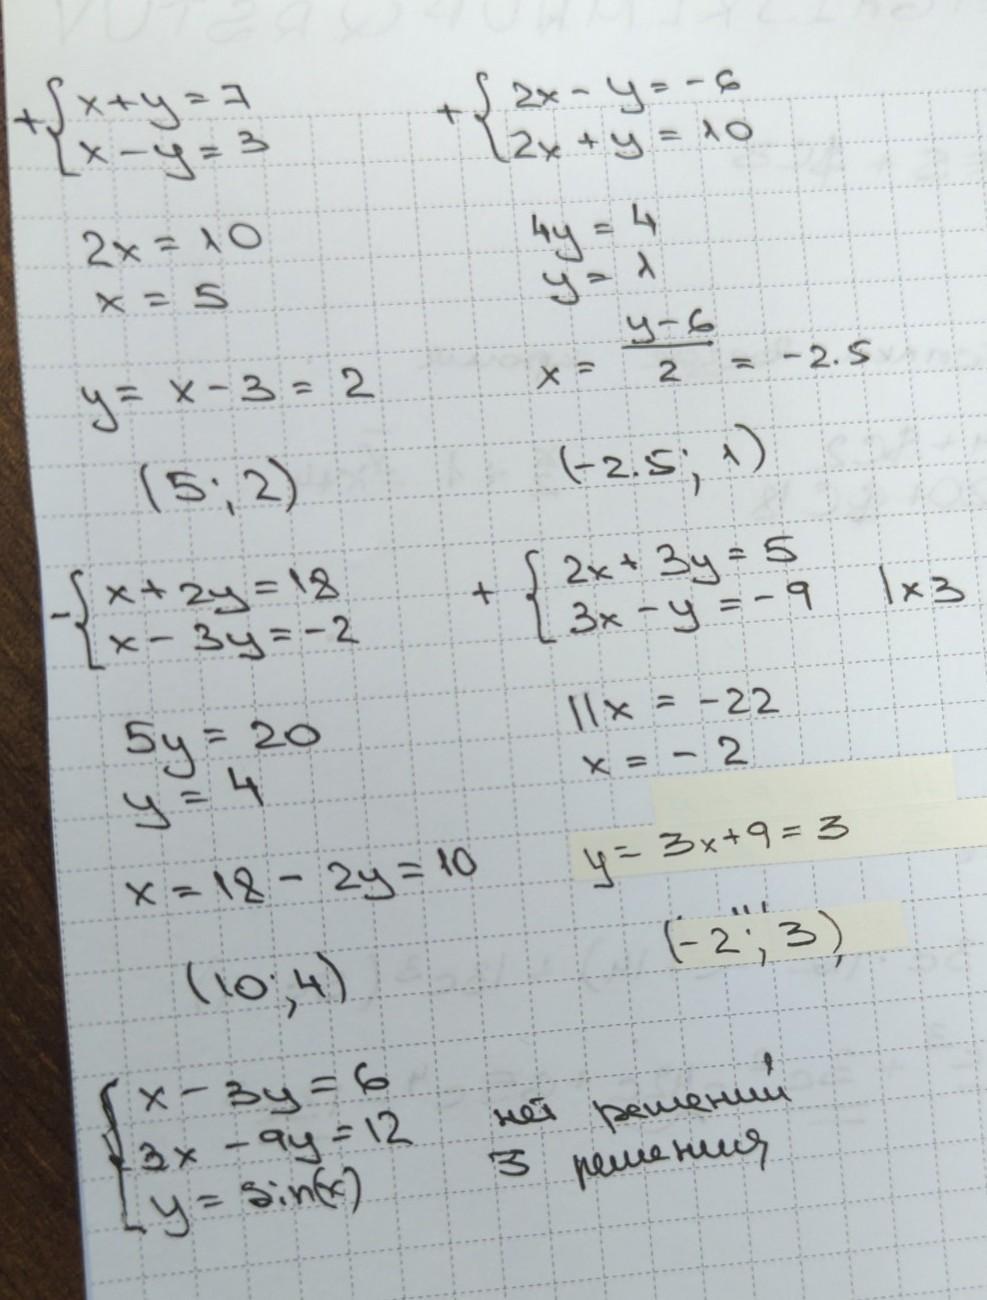 + { x + y = 7
x - y = 3
2x = 10
x = 5
y = x - 3 = 2
(5; 2)
+ { 2x - y = -6
2x + y = 10
4y = 4
y = 1
x = (y - 6)/2 = -2.5
(-2.5; 1)
- { x + 2y = 18
x - 3y = -2
5y = 20
y = 4
x = 18 - 2y = 10
(10; 4)
+ { 2x + 3y = 5
3x - y = -9 | x 3
11x = -22
x = -2
y = 3x + 9 = 3
(-2; 3)
{ x - 3y = 6
3x - 9y = 12
y = sin(x)
нет решений
3 решения